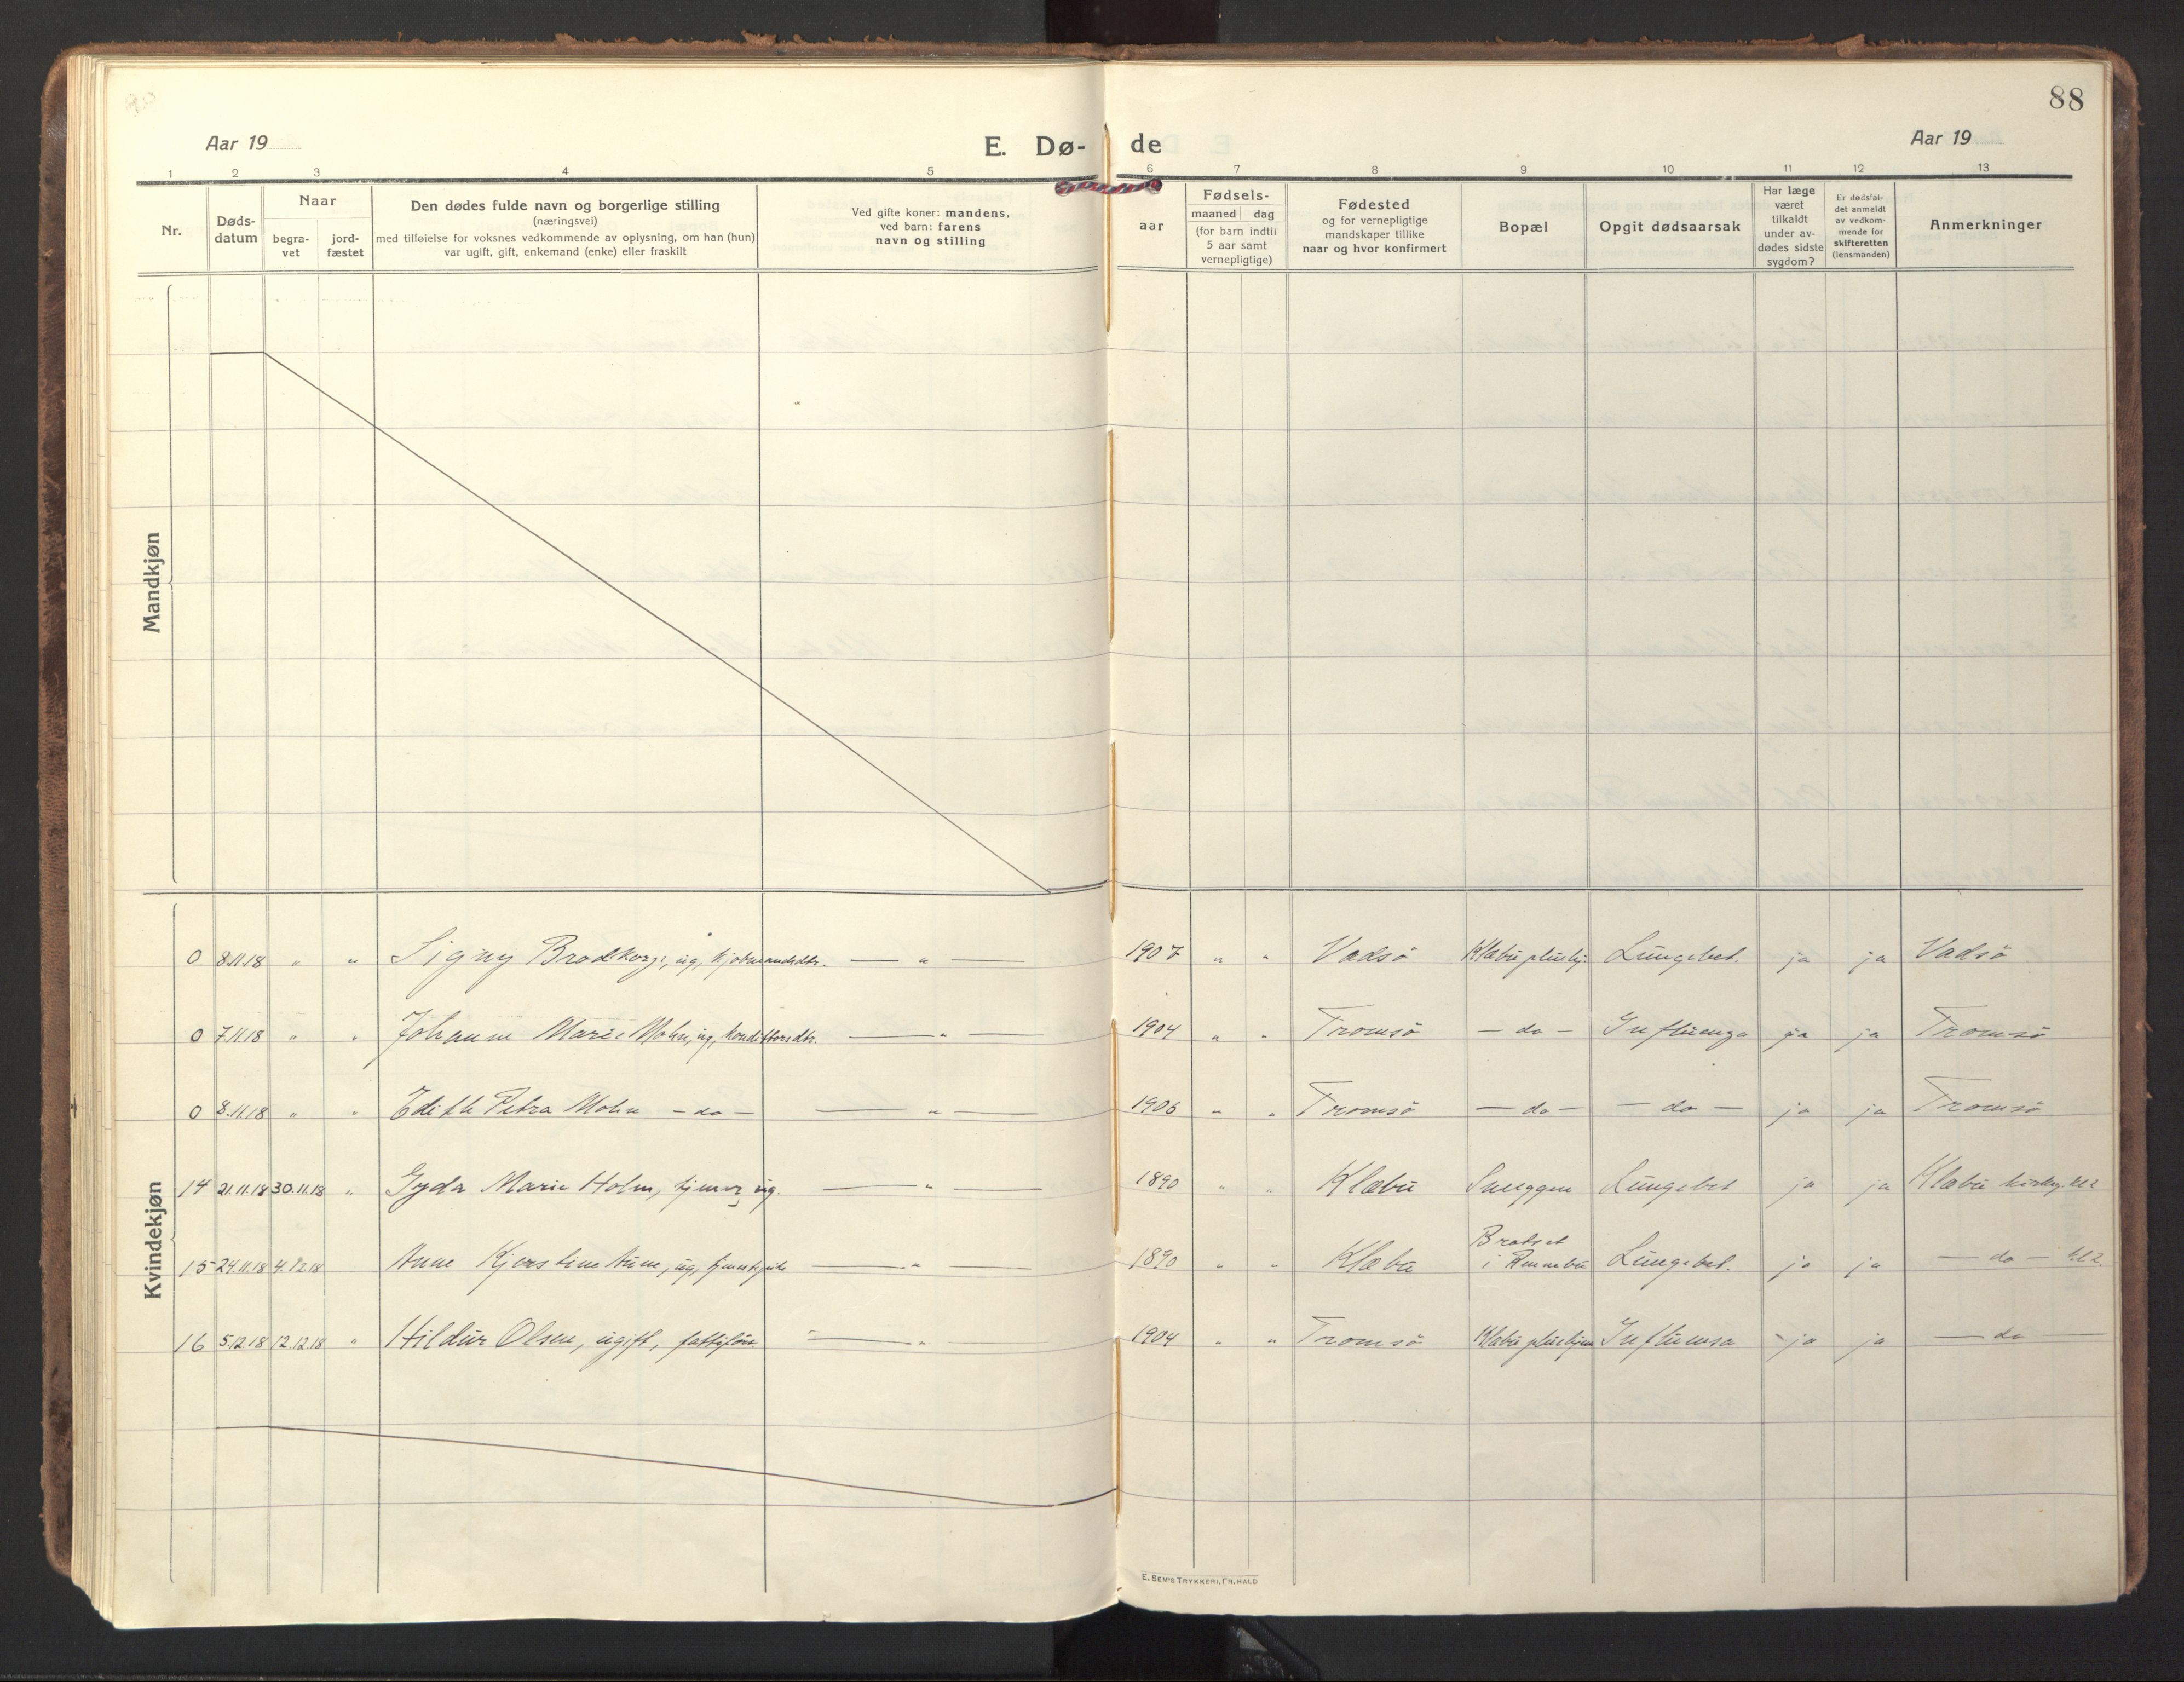 88
Aar 19
E. Dø-
de
Aar 19
1 2 3 4 5 6 7 8 9 10 11 12 13
Nr.
Døds-
datum
Naar
begra-
vet
jord-
fæstet
Den dødes fulde navn og borgerlige stilling
(næringsvei)
med tilføielse for voksnes vedkommende av oplysning, om han (hun)
var ugift, gift, enkemand (enke) eller fraskilt
Ved gifte koner: mandens,
ved barn: farens
navn og stilling
aar
Fødsels-
maaned dag
(for barn indtil
5 aar samt
vernepligtige)
Fødested
og for vernepligtige
mandskaper tillike
naar og hvor konfirmert
Bopæl
Opgit dødsaarsak
Har læge
været
tilkaldt
under av-
dødes sidste
sygdom?
Er dødsfal-
det anmeldt
av vedkom-
mende for
skifteretten
(lensmanden)
Anmerkninger
Mandkjøn
Kvindekjøn
0 8.11.18 " " Signy Brodtkorp, ug, kjøbmandsdtr. — " — 1907 " " Vadsö Klæbu pleiehj. Lungebet. ja ja Vadsö
0 7.11.18 " " Johanne Marie Mohn, ug, konditorsdtr. — " — 1904 " " Tromsö — do — Influenza ja ja Tromsö
0 8.11.18 " " Edith Petra Mohn — do — — " — 1906 " " Tromsö — do — — do — ja ja Tromsö
14 21.11.18 30.11.18 " Gyda Marie Holm, ug. — " — 1890 " " Klæbu Sneeggen Lungebet ja ja Klæbu kirkeg. kl 2
Bratset
15 24.11.18 4.12.18 Anne Kjerstine Aune, ug, tjenestepike — " — 1890 " " Klæbu i Rennebu Lungebet. ja ja — do — kl 2.
16 5.12.18 12.12.18 " Hildur Olsen, ugift, — " 1904 " " Tromsö Klæbu pleiehjem Influensa ja ja — do —
E. SEM'S TRYKKERI, FR. HALD